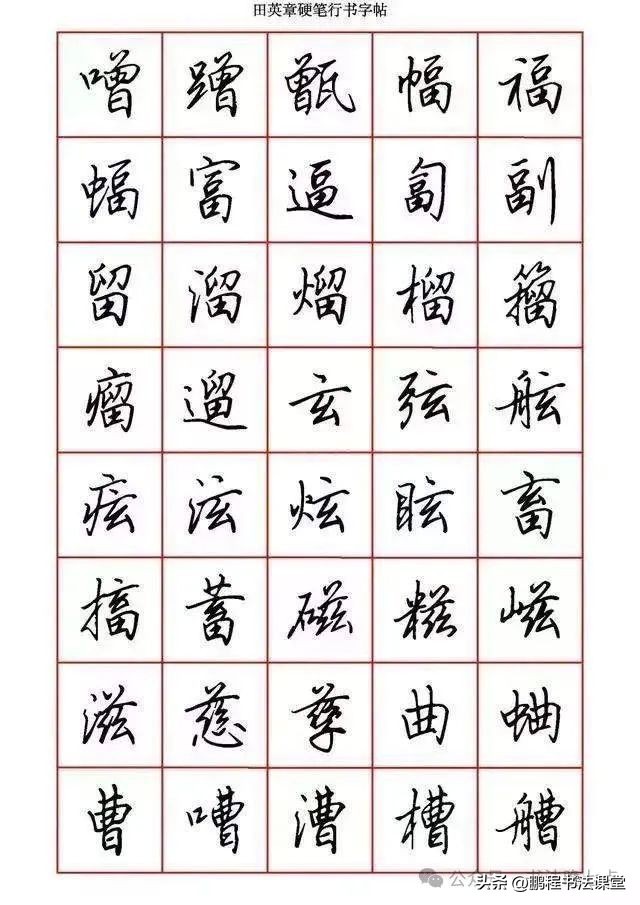 田英章硬笔行书字帖
噌 蹭 甑 幅 福
蝠 富 逼 匐 副
留 溜 熘 榴 籀
瘤 遛 玄 弦 舷
痃 泫 炫 眩 畜
搐 蓄 磁 糍 嵫
滋 慈 孳 曲 蛐
曹 嘈 漕 槽 艚
头条@鹏程书法课堂